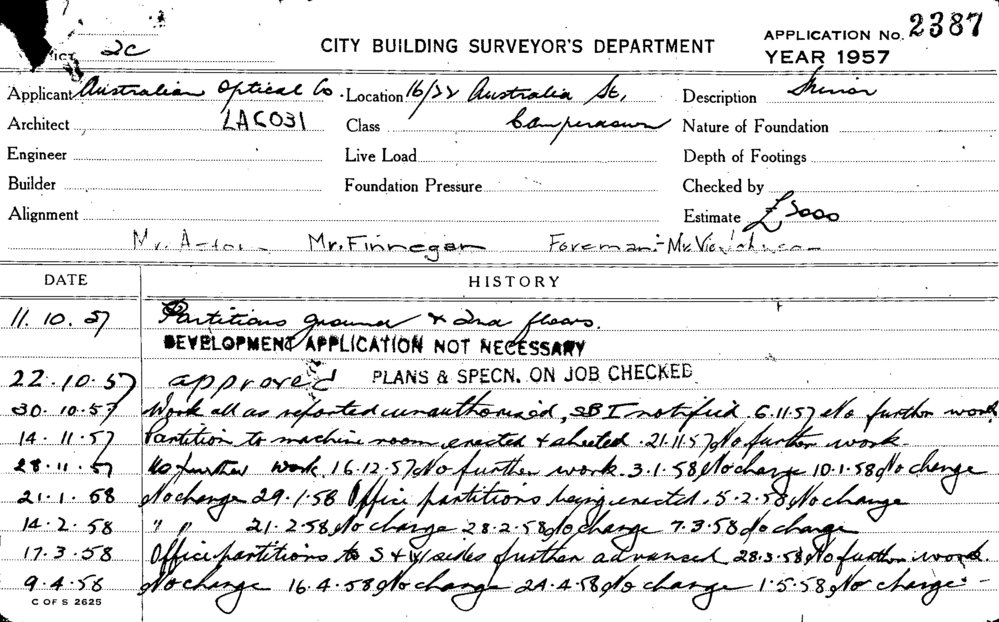 2387
APPLICATION No.
CITY BUILDING SURVEYOR'S DEPARTMENT
YEAR 1957
2C
Applicant Australian Optical Co. Location 16/22 Australia St, Description Minor
Architect LAC031 Class Camperdown Nature of Foundation
Engineer Live Load Depth of Footings
Builder Foundation Pressure Checked by
Alignment Estimate £3000
Mr. Mr. Finnegan Foreman:- Mr. Vic
DATE HISTORY
11.10.57 Partitions ground & 2nd floors.
DEVELOPMENT APPLICATION NOT NECESSARY
22.10.57 approved PLANS & SPECN. ON JOB CHECKED
30.10.57 Work all as reported unauthorised, SBI notified. 6.11.57 No further work
14.11.57 Partition to machine room erected & sheeted. 21.11.57 No further work.
28.11.57 No further work. 16.12.57 No further work. 3.1.58 No change 10.1.58 No change
21.1.58 No change 29.1.58 Office partitions being erected. 5.2.58 No change
14.2.58 " " 21.2.58 No change 28.2.58 No change 7.3.58 No change
17.3.58 Office partitions to S & W sides further advanced 28.3.58 No further work.
9.4.58 No change 16.4.58 No change 24.4.58 No change 1.5.58 No change -
C OF S 2625